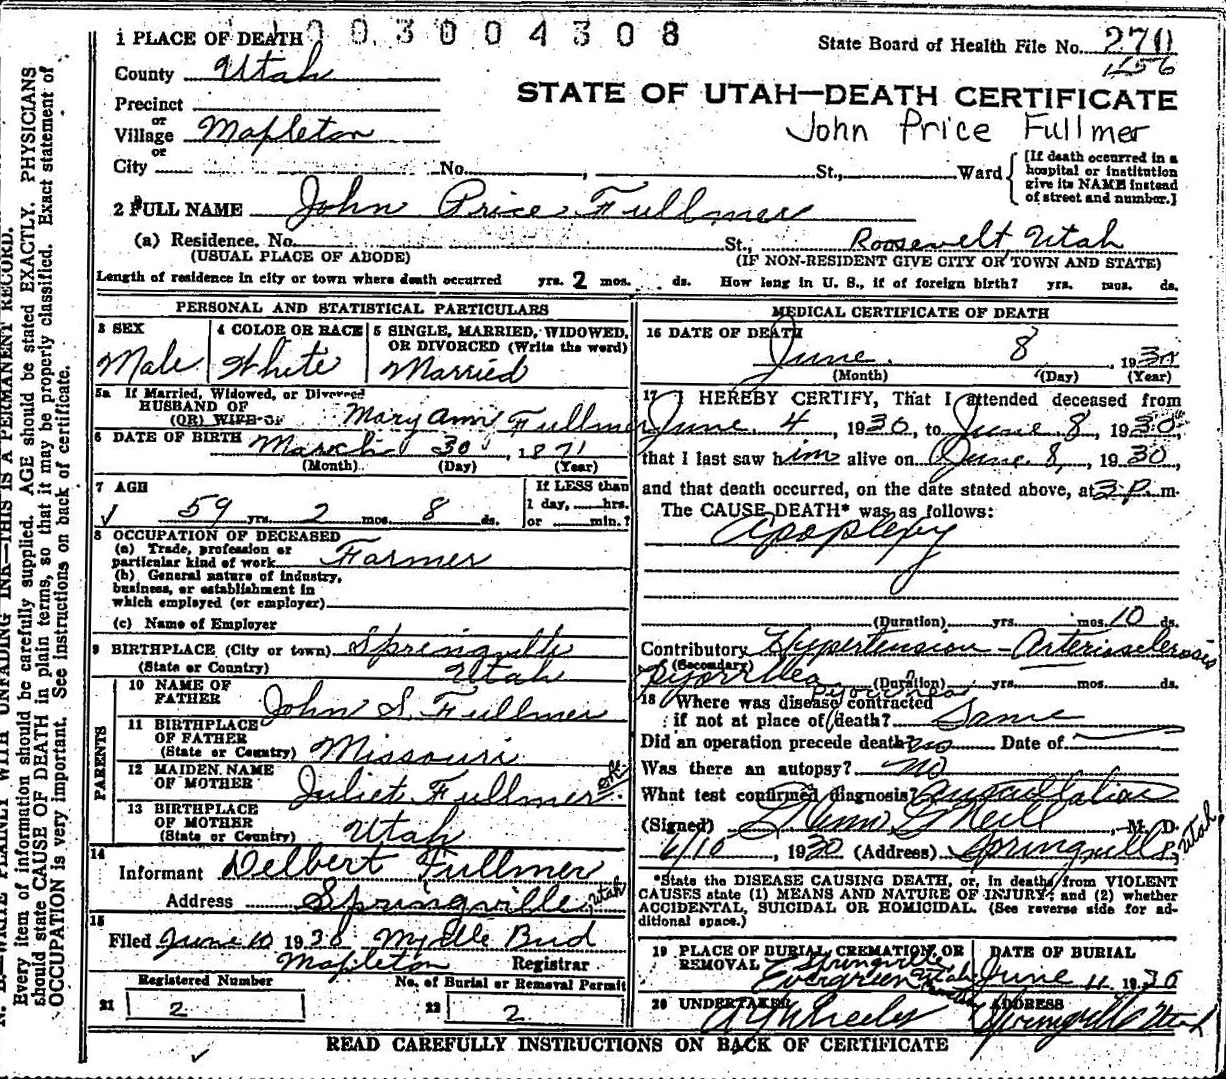 1003004308
1 PLACE OF DEATH
State Board of Health File No. 270
456
County Utah
STATE OF UTAH—DEATH CERTIFICATE
John Price Fullmer
Precinct
or
Village Mapleton
or
City No. , St., Ward
[If death occurred in a
hospital or institution
give its NAME instead
of street and number.]
2 FULL NAME John Price Fullmer
(a) Residence. No. St., Roosevelt, Utah
(USUAL PLACE OF ABODE) (IF NON-RESIDENT GIVE CITY OR TOWN AND STATE)
Length of residence in city or town where death occurred yrs. 2 mos. ds. How long in U. S., if of foreign birth? yrs. mos. ds.
PERSONAL AND STATISTICAL PARTICULARS
3 SEX
Male
4 COLOR OR RACE
White
5 SINGLE, MARRIED, WIDOWED,
OR DIVORCED (Write the word)
Married
5a If Married, Widowed, or Divorced
HUSBAND OF
(OR) WIFE OF Mary Ann Fullmer
6 DATE OF BIRTH March 30, 1871
(Month) (Day) (Year)
7 AGE
59 yrs. 2 mos. 8 ds.
If LESS than
1 day, hrs.
or min.?
8 OCCUPATION OF DECEASED
(a) Trade, profession or
particular kind of work Farmer
(b) General nature of industry,
business, or establishment in
which employed (or employer)
(c) Name of Employer
9 BIRTHPLACE (City or town) Springville
(State or Country) Utah
PARENTS
10 NAME OF
FATHER John S. Fullmer
11 BIRTHPLACE
OF FATHER
(State or Country) Missouri
12 MAIDEN NAME
OF MOTHER Juliet Fullmer
13 BIRTHPLACE
OF MOTHER
(State or Country) Utah
14
Informant Delbert Fullmer
Address Springville, Utah
15
Filed June 10 1930 Myrtle Bird
Mapleton Registrar
Registered Number
21 2
No. of Burial or Removal Permit
22 2
MEDICAL CERTIFICATE OF DEATH
16 DATE OF DEATH
June 8, 1930
(Month) (Day) (Year)
17 I HEREBY CERTIFY, That I attended deceased from
June 4, 1930, to June 8, 1930,
that I last saw him alive on June 8, 1930,
and that death occurred, on the date stated above, at 3 P. m.
The CAUSE DEATH* was as follows:
Apoplexy
(Duration) yrs. mos. 10 ds.
Contributory Hypertension - Arteriosclerosis
(Secondary)
Pyorrhea (Duration) yrs. mos. ds.
Pyorrhea
18 Where was disease contracted
if not at place of death? Same
Did an operation precede death? no Date of
Was there an autopsy? no
What test confirmed diagnosis? Auscultation
(Signed) M. D.
6/10, 1930 (Address) Springville, Utah
*State the DISEASE CAUSING DEATH, or, in deaths from VIOLENT
CAUSES state (1) MEANS AND NATURE OF INJURY; and (2) whether
ACCIDENTAL, SUICIDAL OR HOMICIDAL. (See reverse side for ad-
ditional space.)
19 PLACE OF BURIAL, CREMATION, OR
REMOVAL Springville
Evergreen Utah
DATE OF BURIAL
June 11, 1930
20 UNDERTAKER
A Y Wheeler
ADDRESS
Springville Utah
READ CAREFULLY INSTRUCTIONS ON BACK OF CERTIFICATE
N. B.—WRITE PLAINLY WITH UNFADING INK—THIS IS A PERMANENT RECORD.
Every item of information should be carefully supplied. AGE should be stated EXACTLY. PHYSICIANS
should state CAUSE OF DEATH in plain terms, so that it may be properly classified. Exact statement of
OCCUPATION is very important. See instructions on back of certificate.